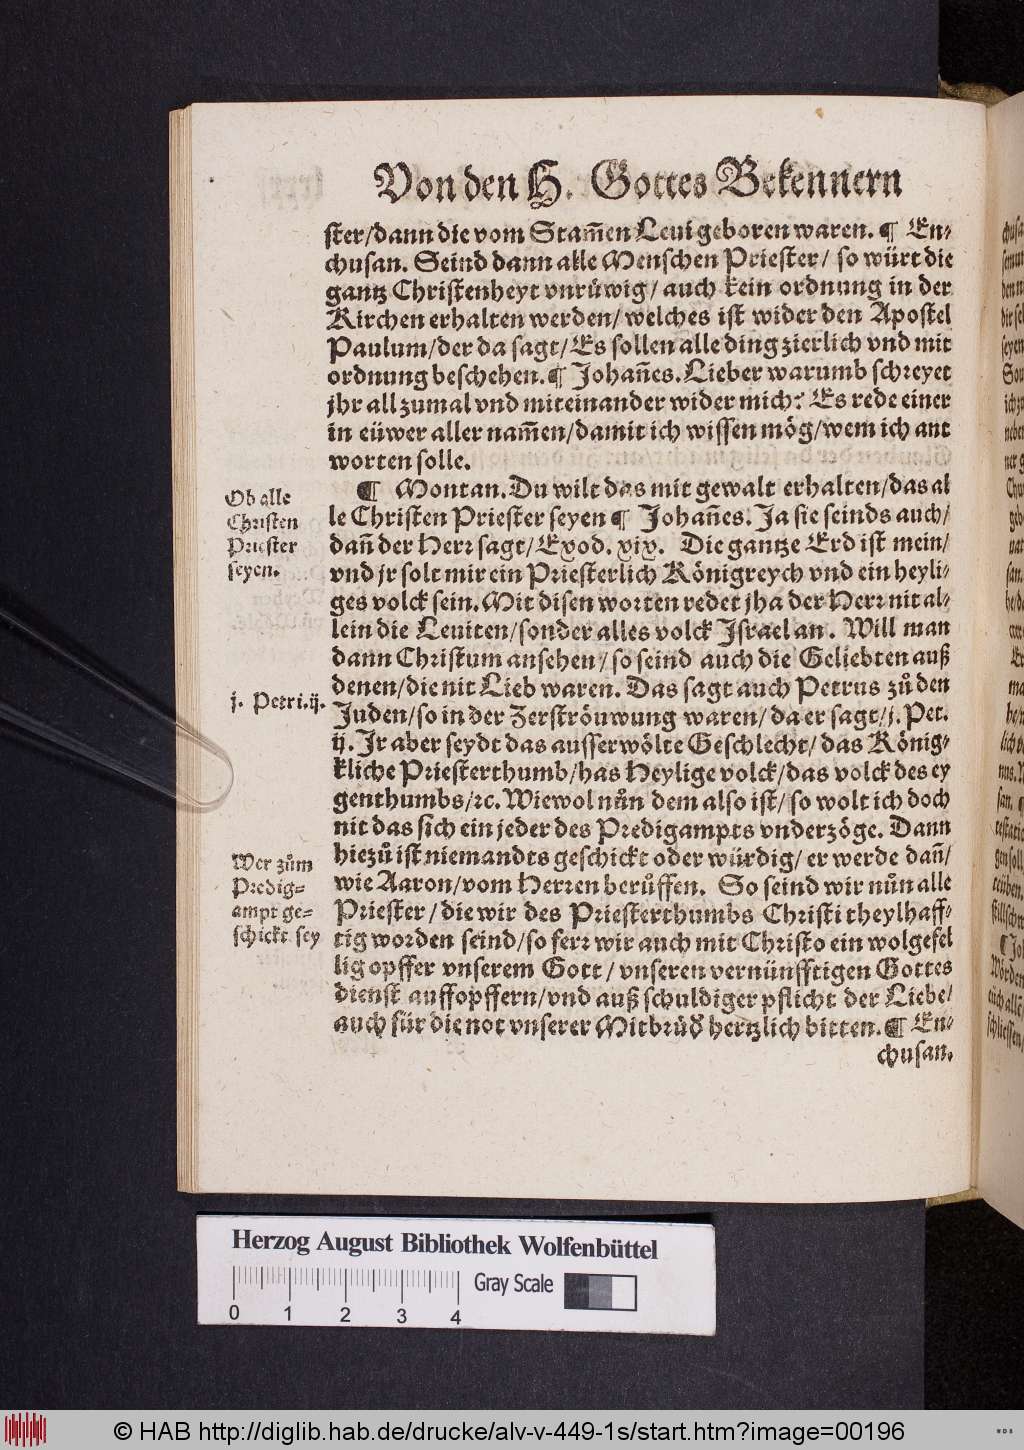 Von den H. Gottes Bekennern
ster/dann die vom Stam̄en Leui geboren waren. ¶ En-
chusan. Seind dann alle Menschen Priester/ so würt die
gantz Christenheyt vnrůwig/ auch kein ordnung in der
Kirchen erhalten werden/ welches ist wider den Apostel
Paulum/der da sagt/Es sollen alle ding zierlich vnd mit
ordnung beschehen. ¶ Johan̄es. Lieber warumb schreyet
jhr all zumal vnd miteinander wider mich? Es rede einer
in eüwer aller nam̄en/damit ich wissen mög/wem ich ant
worten solle.
¶ Montan. Du wilt das mit gewalt erhalten/das al
le Christen Priester seyen ¶ Johan̄es. Ja sie seinds auch/
dan̄ der Herr sagt/Exod. xix. Die gantze Erd ist mein/
vnd jr solt mir ein Priesterlich Königreych vnd ein heyli-
ges volck sein. Mit disen worten redet jha der Herr nit al-
lein die Leuiten/sonder alles volck Israel an. Will man
dann Christum ansehen/so seind auch die Geliebten auß
denen/die nit Lieb waren. Das sagt auch Petrus zů den
Juden/so in der Zerströuwung waren/da er sagt/j. Pet.
ij. Ir aber seydt das ausserwölte Geschlecht/das König-
kliche Priesterthumb/has Heylige volck/das volck des ey
genthumbs/ꝛc. Wiewol nůn dem also ist/so wolt ich doch
nit das sich ein jeder des Predigampts vnderzöge. Dann
hiezů ist niemandts geschickt oder würdig/ er werde dan̄/
wie Aaron/vom Herren berůffen. So seind wir nůn alle
Priester/die wir des Priesterthumbs Christi theylhaff-
tig worden seind/so ferr wir auch mit Christo ein wolgefel
lig opffer vnserem Gott/vnseren vernünfftigen Gottes
dienst auffopffern/vnd auß schuldiger pflicht der Liebe/
auch für die not vnserer Mitbrüd̛ hertzlich bitten. ¶ En-
chusan.
Ob alle
Christen
Priester
seyen.
j. Petri.ij.
Wer zům
Predig-
ampt ge-
schickt sey
Herzog August Bibliothek Wolfenbüttel
Gray Scale
0 1 2 3 4
© HAB http://diglib.hab.de/drucke/alv-v-449-1s/start.htm?image=00196